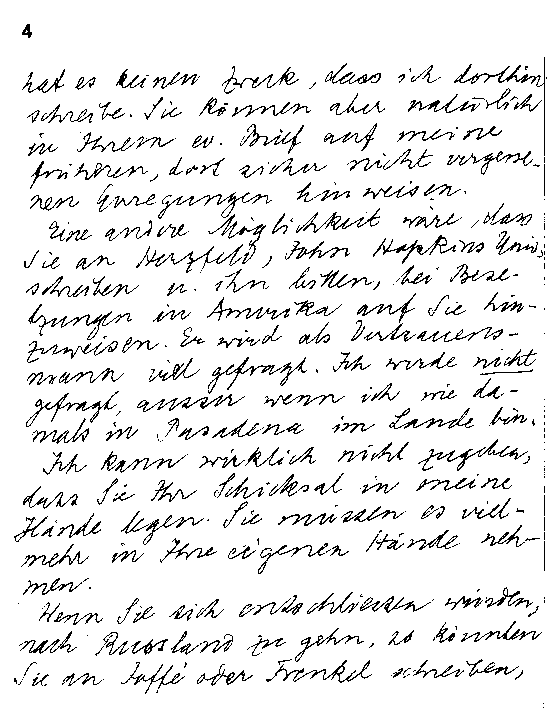 4
hat es keinen Zweck, dass ich dorthin
schreibe. Sie können aber natürlich
in Ihrem ev. Brief auf meine
früheren, dort sicher nicht vergesse-
nen Anregungen hinweisen.
Eine andere Möglichkeit wäre, dass
Sie an Herzfeld, John Hopkins Univ.
schreiben u. ihn bitten, bei Bese-
tzungen in Amerika auf Sie hin-
zuweisen. Er wird als Vertrauens-
mann viel gefragt. Ich werde nicht
gefragt, ausser wenn ich wie da-
mals in Pasadena im Lande bin.
Ich kann wirklich nicht zugeben,
dass Sie Ihr Schicksal in meine
Hände legen. Sie müssen es viel-
mehr in Ihre eigenen Hände neh-
men.
Wenn Sie sich entschliessen würden,
nach Russland zu gehn, so könnten
Sie an Joffé oder Frenkel schreiben,